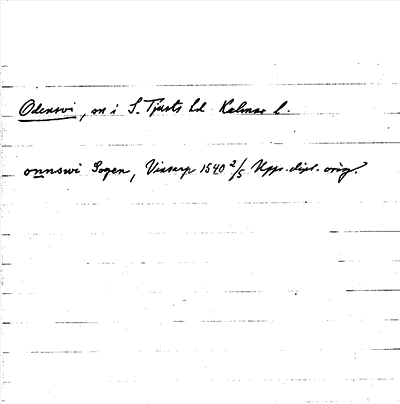 Odensvi, sn i S. Tjusts hd Kalmar l.
onnswi Sogen, Vinäs 1540 2/5 Upps. dipl. orig.